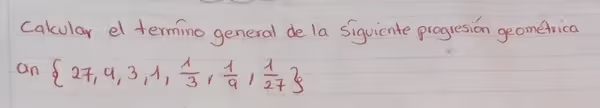 Calcular el termino general de la siguiente progresión geométrica
an { 27, 9, 3, 1, 1/3, 1/9, 1/27 }